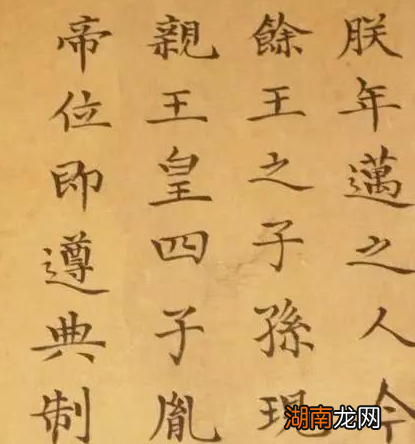 朕年邁之人今
餘王之子孫現
親王皇四子胤
帝位即遵典制
湖南龙网